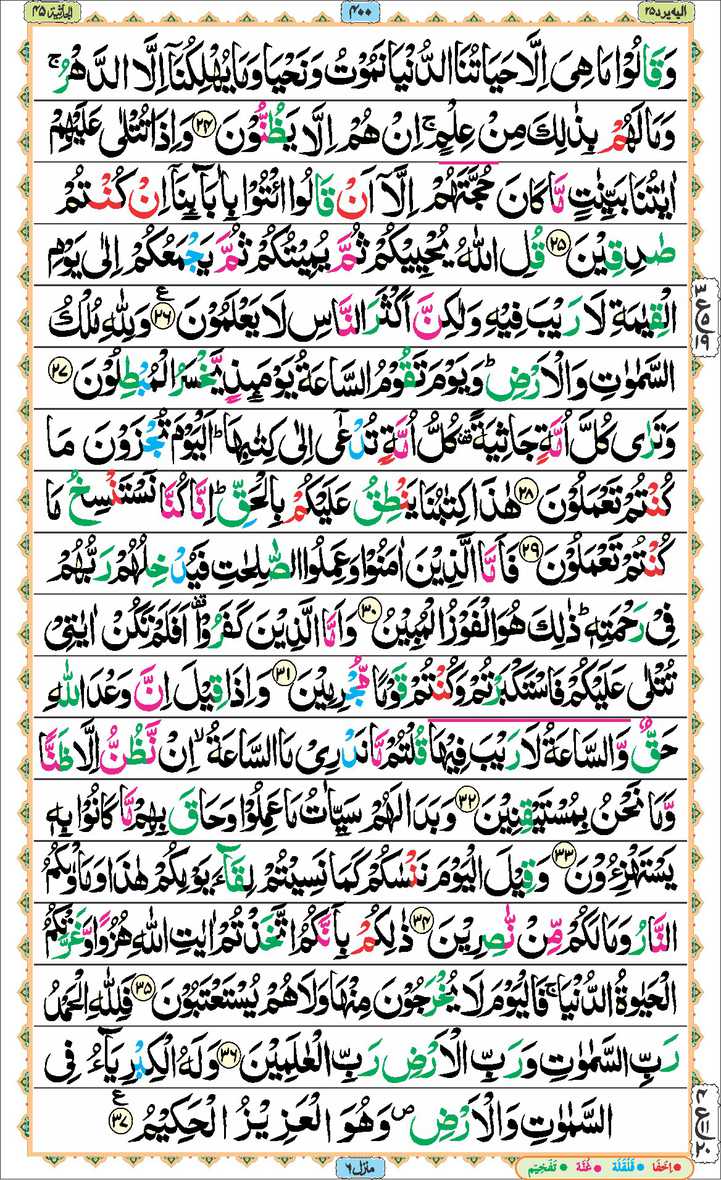 اليه يرد ٢٥
٤٠٠
الجاثية ٤٥
وَقَالُوْا مَا هِىَ اِلَّا حَيَاتُنَا الدُّنْيَا نَمُوْتُ وَنَحْيَا وَمَا يُهْلِكُنَاۤ اِلَّا الدَّهْرُ ۚ
وَمَا لَهُمْ بِذٰلِكَ مِنْ عِلْمٍ ۚ اِنْ هُمْ اِلَّا يَظُنُّوْنَ ﴿۲۴﴾ وَاِذَا تُتْلٰى عَلَيْهِمْ
اٰيٰتُنَا بَيِّنٰتٍ مَّا كَانَ حُجَّتَهُمْ اِلَّاۤ اَنْ قَالُوا ائْتُوْا بِاٰبَآىِٕنَاۤ اِنْ كُنْتُمْ
صٰدِقِيْنَ ﴿۲۵﴾ قُلِ اللّٰهُ يُحْيِيْكُمْ ثُمَّ يُمِيْتُكُمْ ثُمَّ يَجْمَعُكُمْ اِلٰى يَوْمِ
الْقِيٰمَةِ لَا رَيْبَ فِيْهِ وَلٰكِنَّ اَكْثَرَ النَّاسِ لَا يَعْلَمُوْنَ ﴿۲۶﴾ ع وَلِلّٰهِ مُلْكُ
السَّمٰوٰتِ وَالْاَرْضِ ؕ وَيَوْمَ تَقُوْمُ السَّاعَةُ يَوْمَىِٕذٍ يَّخْسَرُ الْمُبْطِلُوْنَ ﴿۲۷﴾
وَتَرٰى كُلَّ اُمَّةٍ جَاثِيَةً ۫ كُلُّ اُمَّةٍ تُدْعٰۤى اِلٰى كِتٰبِهَا ؕ اَلْيَوْمَ تُجْزَوْنَ مَا
كُنْتُمْ تَعْمَلُوْنَ ﴿۲۸﴾ هٰذَا كِتٰبُنَا يَنْطِقُ عَلَيْكُمْ بِالْحَقِّ ؕ اِنَّا كُنَّا نَسْتَنْسِخُ مَا
كُنْتُمْ تَعْمَلُوْنَ ﴿۲۹﴾ فَاَمَّا الَّذِيْنَ اٰمَنُوْا وَعَمِلُوا الصّٰلِحٰتِ فَيُدْخِلُهُمْ رَبُّهُمْ
فِىْ رَحْمَتِهٖ ؕ ذٰلِكَ هُوَ الْفَوْزُ الْمُبِيْنُ ﴿۳۰﴾ وَاَمَّا الَّذِيْنَ كَفَرُوْا ۫ اَفَلَمْ تَكُنْ اٰيٰتِىْ
تُتْلٰى عَلَيْكُمْ فَاسْتَكْبَرْتُمْ وَكُنْتُمْ قَوْمًا مُّجْرِمِيْنَ ﴿۳۱﴾ وَاِذَا قِيْلَ اِنَّ وَعْدَ اللّٰهِ
حَقٌّ وَّالسَّاعَةُ لَا رَيْبَ فِيْهَا قُلْتُمْ مَّا نَدْرِىْ مَا السَّاعَةُ ۙ اِنْ نَّظُنُّ اِلَّا ظَنًّا
وَّمَا نَحْنُ بِمُسْتَيْقِنِيْنَ ﴿۳۲﴾ وَبَدَا لَهُمْ سَيِّاٰتُ مَا عَمِلُوْا وَحَاقَ بِهِمْ مَّا كَانُوْا بِهٖ
يَسْتَهْزِءُوْنَ ﴿۳۳﴾ وَقِيْلَ الْيَوْمَ نَنْسٰكُمْ كَمَا نَسِيْتُمْ لِقَآءَ يَوْمِكُمْ هٰذَا وَمَاْوٰىكُمُ
النَّارُ وَمَا لَكُمْ مِّنْ نّٰصِرِيْنَ ﴿۳۴﴾ ذٰلِكُمْ بِاَنَّكُمُ اتَّخَذْتُمْ اٰيٰتِ اللّٰهِ هُزُوًا وَّغَرَّتْكُمُ
الْحَيٰوةُ الدُّنْيَا ۚ فَالْيَوْمَ لَا يُخْرَجُوْنَ مِنْهَا وَلَا هُمْ يُسْتَعْتَبُوْنَ ﴿۳۵﴾ فَلِلّٰهِ الْحَمْدُ
رَبِّ السَّمٰوٰتِ وَرَبِّ الْاَرْضِ رَبِّ الْعٰلَمِيْنَ ﴿۳۶﴾ وَلَهُ الْكِبْرِيَآءُ فِى
السَّمٰوٰتِ وَالْاَرْضِ ۪ وَهُوَ الْعَزِيْزُ الْحَكِيْمُ ﴿۳۷﴾ ع
منزل ٦
اِخفَا قَلْقَلَة غُنَّة تَفْخِيْم